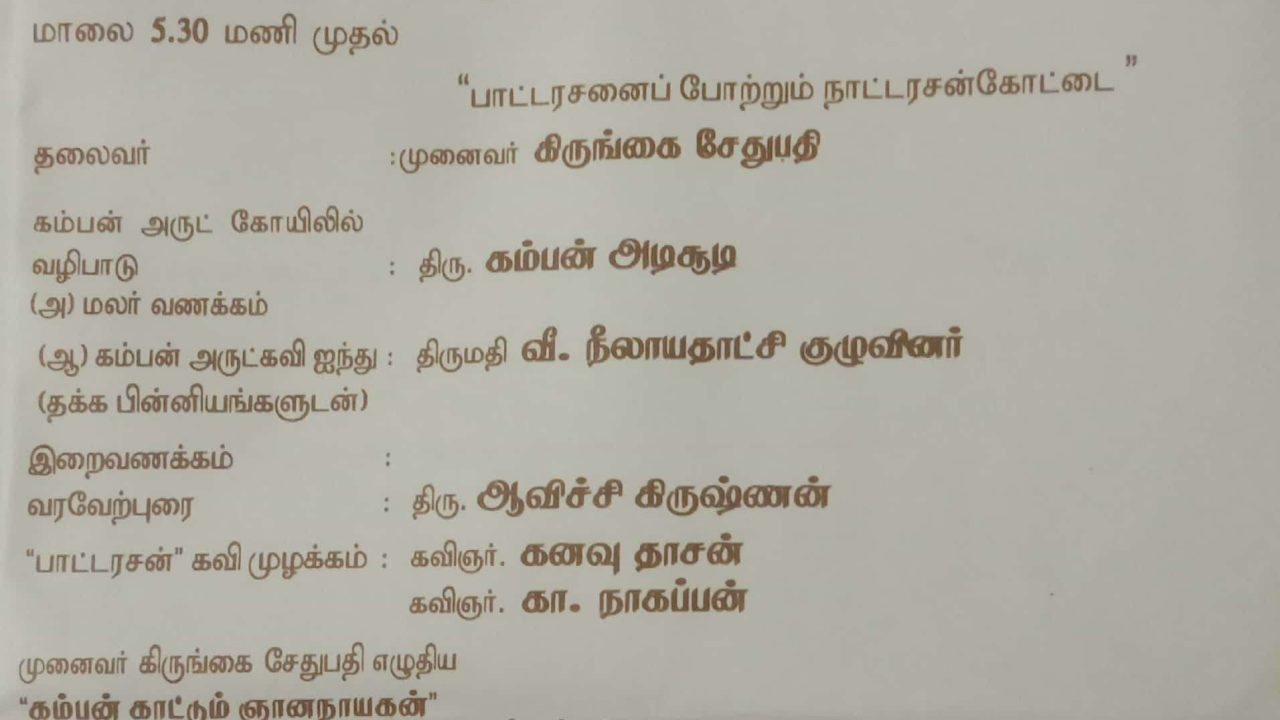 மாலை 5.30 மணி முதல்
“பாட்டரசனைப் போற்றும் நாட்டரசன்கோட்டை”
தலைவர் :முனைவர் கிருங்கை சேதுபதி
கம்பன் அருட் கோயிலில்
வழிபாடு : திரு. கம்பன் அடிசூடி
(அ) மலர் வணக்கம்
(ஆ) கம்பன் அருட்கவி ஐந்து : திருமதி வீ. நீலாயதாட்சி குழுவினர்
(தக்க பின்னியங்களுடன்)
இறைவணக்கம் :
வரவேற்புரை : திரு. ஆவிச்சி கிருஷ்ணன்
“பாட்டரசன்” கவி முழக்கம் : கவிஞர். கனவு தாசன்
கவிஞர். கா. நாகப்பன்
முனைவர் கிருங்கை சேதுபதி எழுதிய
“கம்பன் காட்டும் ஞானநாயகன்”